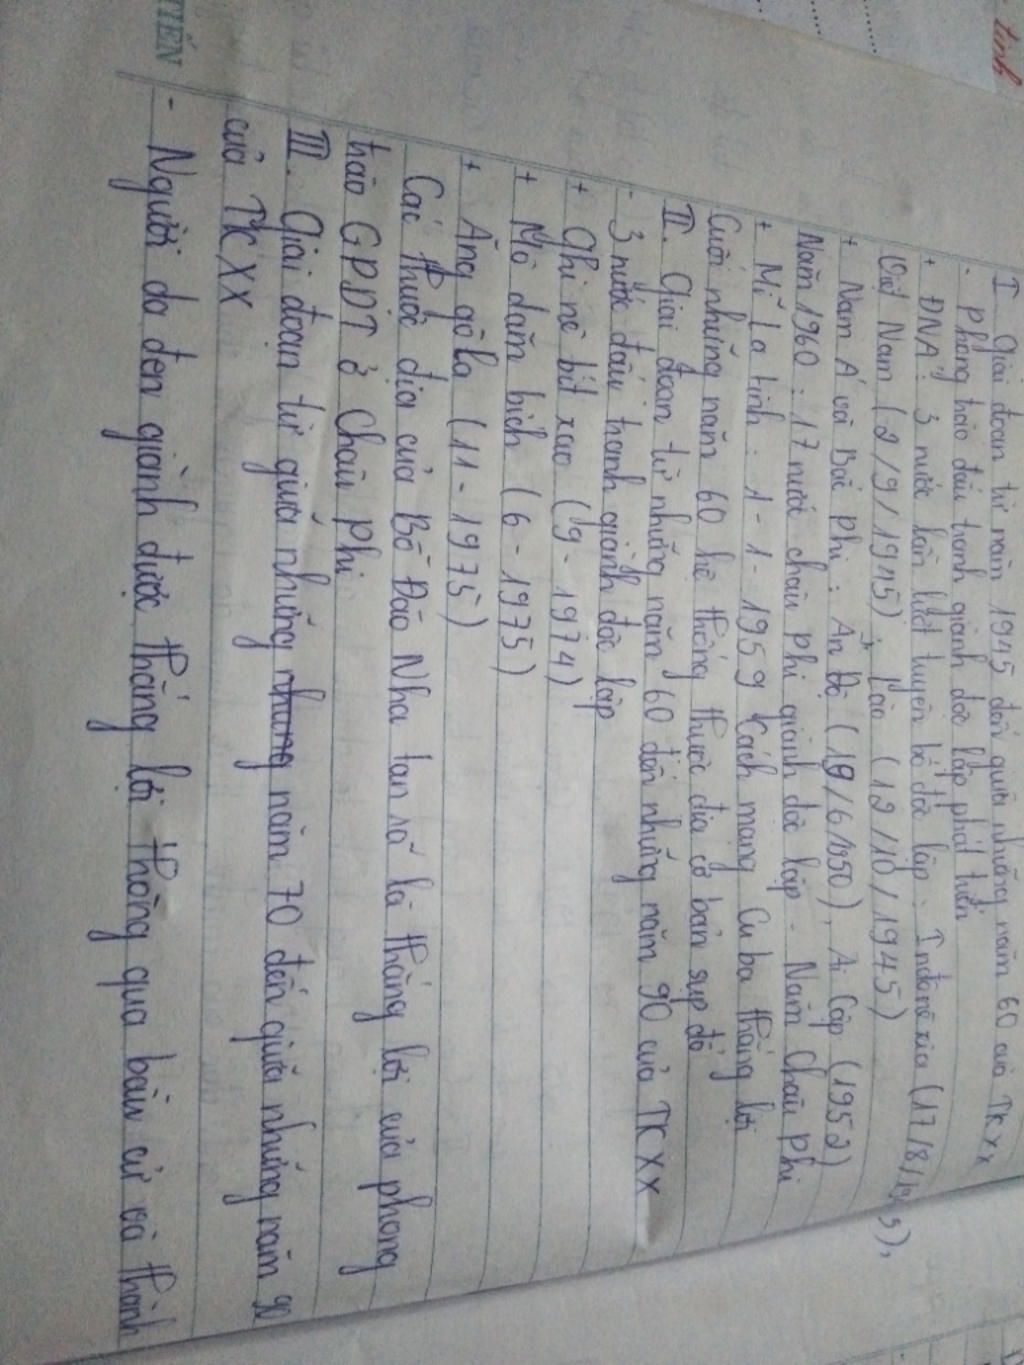 tinh
I. Giai đoạn từ năm 1945 đến giữa những năm 60 của TK XX
- Phong trào đấu tranh giành độc lập phát triển
+ ĐNÁ: 3 nước lần lượt tuyên bố độc lập: Inđônêxia (17/8/1945),
Việt Nam (2/9/1945), Lào (12/10/1945)
+ Nam Á và Bắc Phi: Ấn Độ (19/6/1950), Ai Cập (1952)
Năm 1960: 17 nước châu Phi giành độc lập - Năm Châu Phi
+ Mĩ La tinh: 1-1-1959 Cách mạng Cu ba thắng lợi
Cuối những năm 60 hệ thống thuộc địa cơ bản sụp đổ
II. Giai đoạn từ những năm 60 đến những năm 90 của TK XX
- 3 nước đấu tranh giành độc lập
+ Ghi nê bít xao (9-1974)
+ Mô dăm bích (6-1975)
+ Ăng gô la (11-1975)
Các thuộc địa của Bồ Đào Nha tan rã là thắng lợi của phong
trào GPDT ở Châu Phi
III. Giai đoạn từ giữa những nhung năm 70 đến giữa những năm 90
của TK XX
- Người da đen giành được thắng lợi thông qua bầu cử và thành
TIẾN